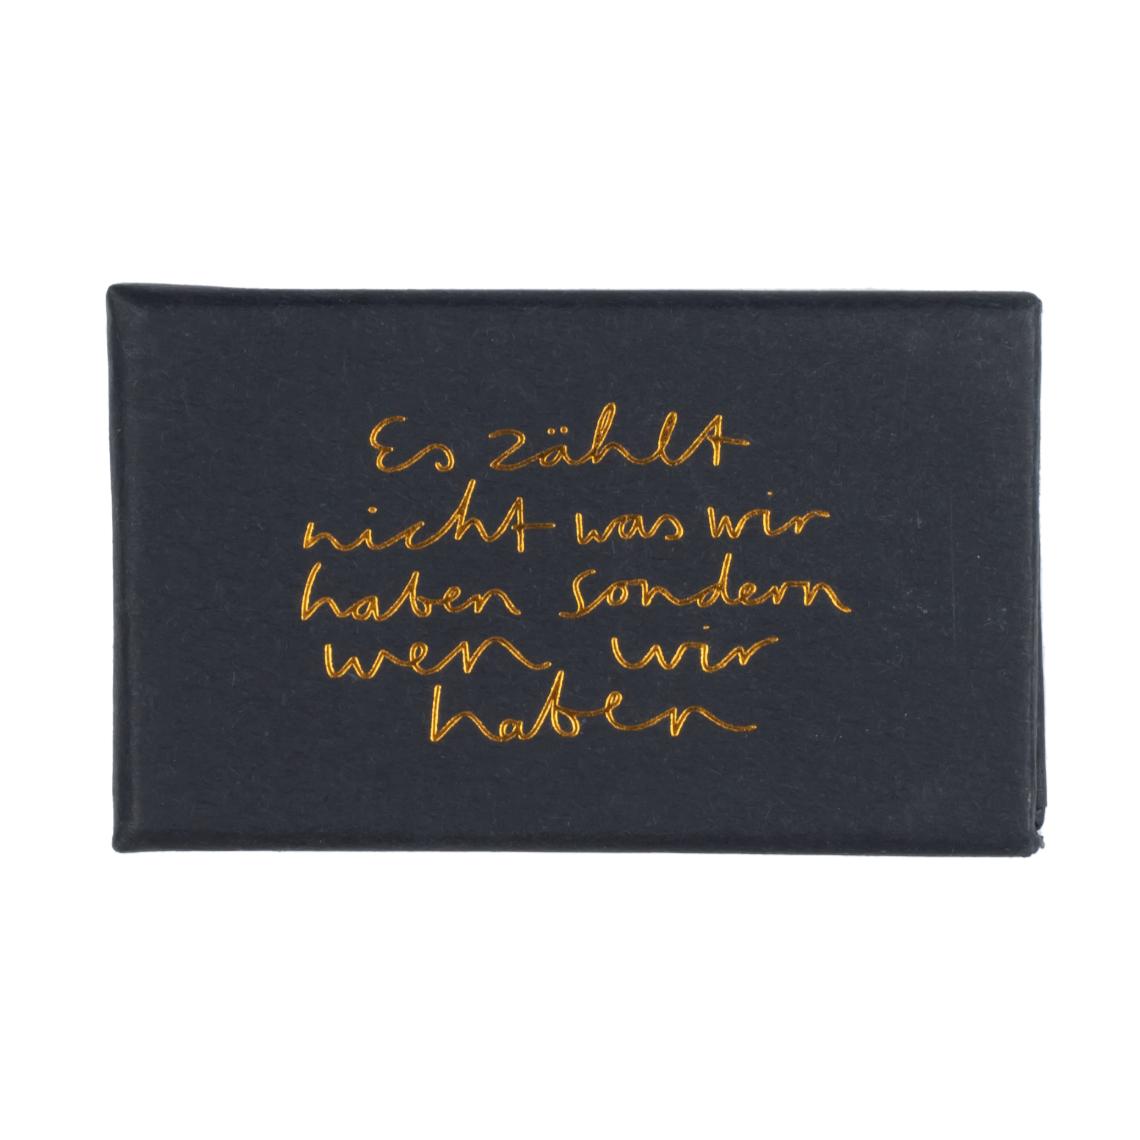 Es zählt
nicht was wir
haben sondern
wen wir
haben